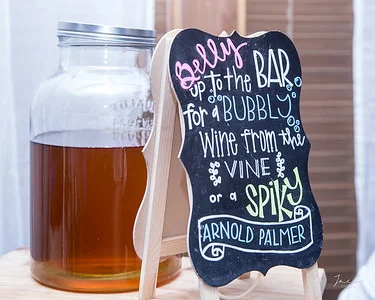 Belly
up to the BAR
for a BUBBLY
Wine from the
VINE
or a SPIKY
ARNOLD PALMER